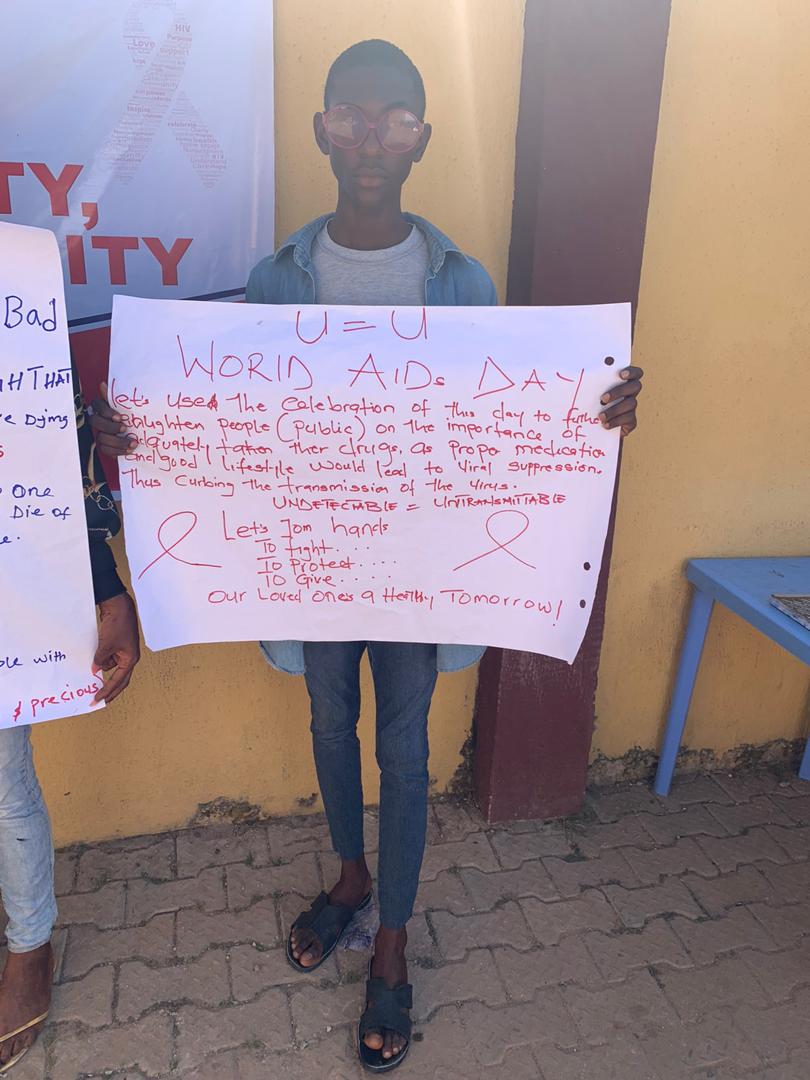 HIV
Love
Support
TY,
ITY
Bad
GHT THAT
ve Dying
one
Die of
ple with
& precious
U = U
WORLD AIDs DAY
Let's Use the celebration of this day to furthe
enlighten people (public) on the importance of
adquately taken ther drugs, as propa medication
and good lifestyle would lead to viral suppression.
Thus Curbing the transmission of the virus.
UNDETECTABLE = UNTRANSMITTABLE
Let's Join hands
To fight . . . .
To Protect . . . .
To Give . . . . .
Our Loved One's a Healthy Tomorrow!